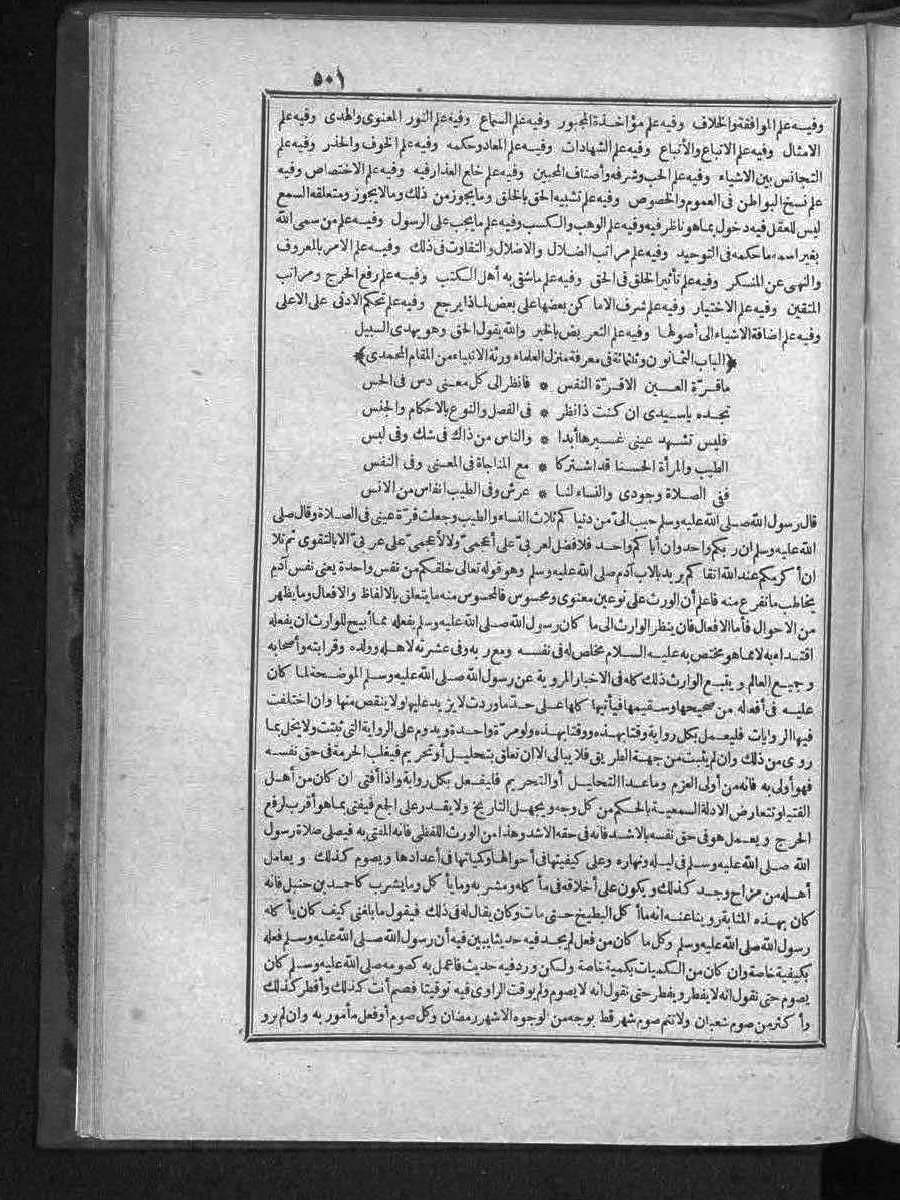 ٥٠١
وفيه علم الموافقة والخلاف وفيه علم مؤاخذة المجبور وفيه علم السماع وفيه علم النور المعنوى والهدى وفيه علم
الامثال وفيه علم الاتباع والأتباع وفيه علم الشهادات وفيه علم المعاد وحكمه وفيه علم الخوف والحذر وفيه علم
التجانس بين الاشياء وفيه علم الحب وشرفه وأصناف المحبين وفيه علم خلع العذار فيه وفيه علم الاختصاص وفيه
علم نسخ البواطن فى العموم والخصوص وفيه علم تشبيه الحق بالخلق وما يجوز من ذلك وما لا يجوز ومتعلقه السمع
ليس للعقل فيه دخول بما هو ناظر فيه وفيه علم الوهب والكسب وفيه علم ما يجب على الرسول وفيه علم من سمى الله
بغير اسمه ما حكمه فى التوحيد وفيه علم مراتب الضلال والاضلال والتفاوت فى ذلك وفيه علم الامر بالمعروف
والنهى عن المنكر وفيه علم تأثير الخلق فى الحق وفيه علم ما شقى به أهل الكتب وفيه علم رفع الحرج ومراتب
المتقين وفيه علم الاختيار وفيه علم شرف الاماكن بعضها على بعض لماذا يرجع وفيه علم تحكم الادنى على الاعلى
وفيه علم اضافة الاشياء الى أصولها وفيه علم التعريض بالخير والله يقول الحق وهو يهدى السبيل
﴿الباب الثمانون وثلثمائة فى معرفة منزل العلماء ورثة الانبياء من المقام المحمدى﴾
ما قرّة العين الا قرّة النفس * فانظر الى كل معنى دس فى الحس
تجده ياسيدى ان كنت ذا نظر * فى الفصل والنوع بالاحكام والجنس
فليس تشهد عينى غيرها أبدا * والناس من ذاك فى شك وفى لبس
الطيب والمرأة الحسنا قد اشتركا * مع المناجاة فى المعنى وفى النفس
ففى الصلاة وجودى والنساء لنا * عرش وفى الطيب انفاس من الانس
قال رسول الله صلى الله عليه وسلم حبب الىّ من دنياكم ثلاث النساء والطيب وجعلت قرّة عينى فى الصلاة وقال صلى
الله عليه وسلم ان ربكم واحد وان أباكم واحد فلا فضل لعربىّ على أعجمىّ ولا لأعجمىّ على عربىّ الا بالتقوى ثم تلا
ان أكرمكم عند الله اتقاكم يريد بالاب آدم صلى الله عليه وسلم وهو قوله تعالى خلقكم من نفس واحدة يعنى نفس آدم
يخاطب ما تفرع منه فاعلم أن الورث على نوعين معنوى ومحسوس فالمحسوس منه ما يتعلق بالالفاظ والافعال وما يظهر
من الاحوال فأما الافعال فان ينظر الوارث الى ما كان رسول الله صلى الله عليه وسلم يفعله مما أبيح للوارث ان يفعله
اقتداء به لا مما هو مختص به عليه السلام مخلص له فى نفسه ومع ربه وفى عشرته لاهله وولده وقرابته وأصحابه
وجميع العالم ويتبع الوارث ذلك كله فى الاخبار المروية عن رسول الله صلى الله عليه وسلم الموضحة لما كان
عليه فى أفعاله من صحيحها وسقيمها فيأتيها كلها على حد ما وردت لا يزيد عليها ولا ينقص منها وان اختلفت
فيها الروايات فليعمل بكل رواية وقتا بهذه ووقتا بهذه ولو مرّة واحدة ويدوم على الرواية التى ثبتت ولا يخل بما
روى من ذلك وان لم يثبت من جهة الطريق فلا يبالى الا ان تعلق بتحليل أو تحريم فيغلب الحرمة فى حق نفسه
فهو أولى به فانه من أولى العزم وما عدا التحليل أو التحريم فليفعل بكل رواية واذا أفتى ان كان من أهل
الفتيا وتتعارض الادلة السمعية بالحكم من كل وجه ويجهل التاريخ ولا يقدر على الجمع فيفتى بما هو أقرب لرفع
الحرج ويعمل هو فى حق نفسه بالاشد فانه فى حقه الاشد وهذا من الورث اللفظى فانه المفتى به فيصلى صلاة رسول
الله صلى الله عليه وسلم فى ليله ونهاره وعلى كيفيتها فى أحوالها وكمياتها فى أعدادها ويصوم كذلك ويعامل
أهله من مزاح وجد كذلك ويكون على أخلاقه فى مأكله ومشربه وما يأكل وما يشرب كاحمد بن حنبل فانه
كان بهذه المثابة روينا عنه انه ما أكل البطيخ حتى مات وكان يقال له فى ذلك فيقول ما بلغنى كيف كان يأكله
رسول الله صلى الله عليه وسلم وكل ما كان من فعل لم يجد فيه حديثا يبين فيه أن رسول الله صلى الله عليه وسلم فعله
بكيفية خاصة وان كان من الكميات بكمية خاصة ولكن ورد فيه حديث فاعمل به كصومه صلى الله عليه وسلم كان
يصوم حتى نقول انه لا يفطر ويفطر حتى نقول انه لا يصوم ولم يوقت الراوى فيه توقيتا فصم أنت كذلك وأفطر كذلك
وأكثر من صوم شعبان ولا تتم صوم شهر قط بوجه من الوجوه الا شهر رمضان وكل صوم أو فعل مأمور به وان لم يرو